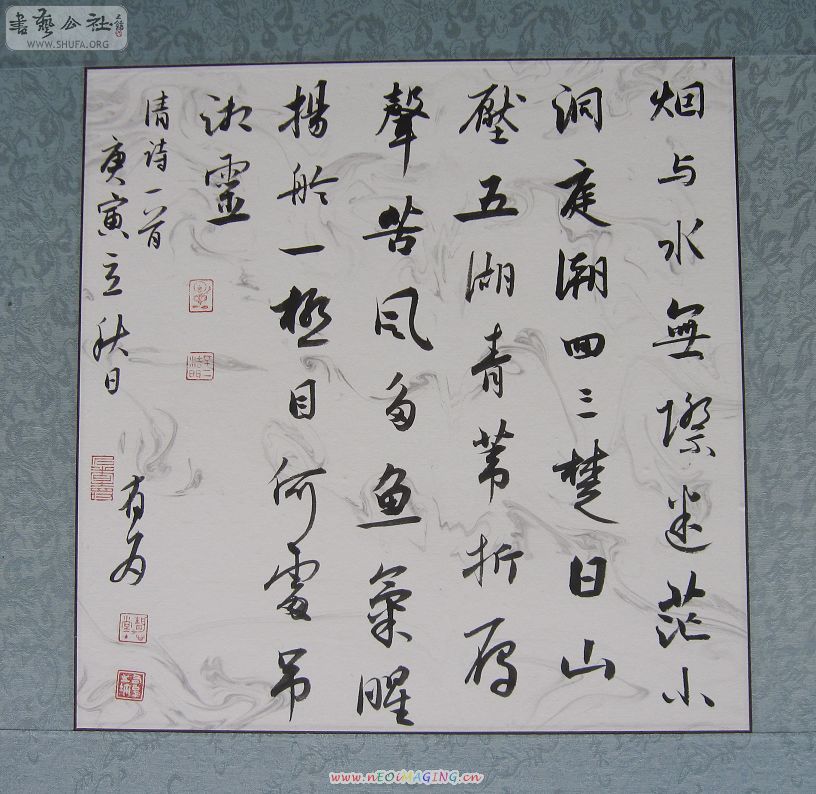 書藝公社
WWW.SHUFA.ORG
烟与水無際迷茫小
洞庭潮囬三楚日山
壓五湖青葦折雁
聲苦風多魚氣腥
揚舲一極目何處吊
湘靈
清詩一首
庚寅立秋日
有为
www.nEOiMAGiNG.cn